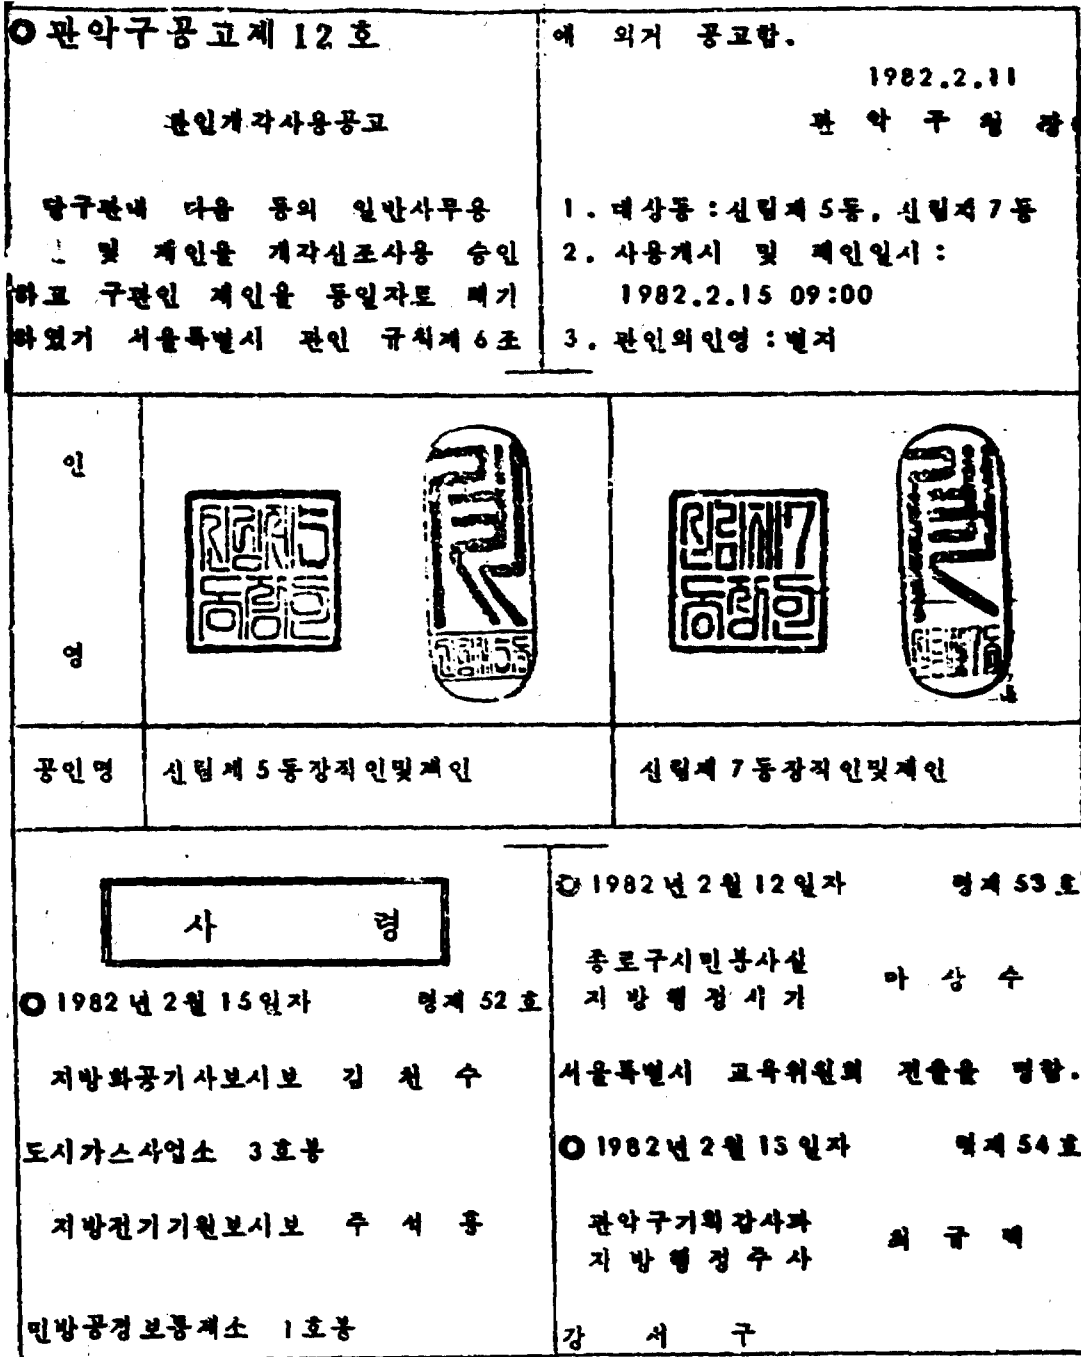 ○ 관악구공고제 12 호
관인개각사용공고
당구관내 다음 동의 일반사무용
인 및 계인을 개각신조사용 승인
하고 구관인 계인을 동일자로 폐기
하였기 서울특별시 관인 규칙제 6 조
에 의거 공고함.
1982.2.11
관 악 구 청 장
1. 대상동 : 신림제 5동, 신림제 7 동
2. 사용개시 및 폐인일시 :
1982.2.15 09:00
3. 관인의인영 : 별지
인
영
신림제5
동장인
신림제7
동장인
공인명
신림제 5 동장직인및계인
신림제 7 동장직인및계인
사 령
○ 1982 년 2월 15일자 령제 52 호
지방화공기사보시보 김 천 수
도시가스사업소 3호봉
지방전기기원보시보 주 석 홍
민방공경보통제소 1호봉
○ 1982 년 2 월 12 일자 령제 53 호
종로구시민봉사실
지 방 행 정 서 기
마 상 수
서울특별시 교육위원회 전출을 명함.
○ 1982년 2 월 13 일자 령제 54 호
관악구기획감사과
지 방 행 정 주 사
최 규 택
강 서 구